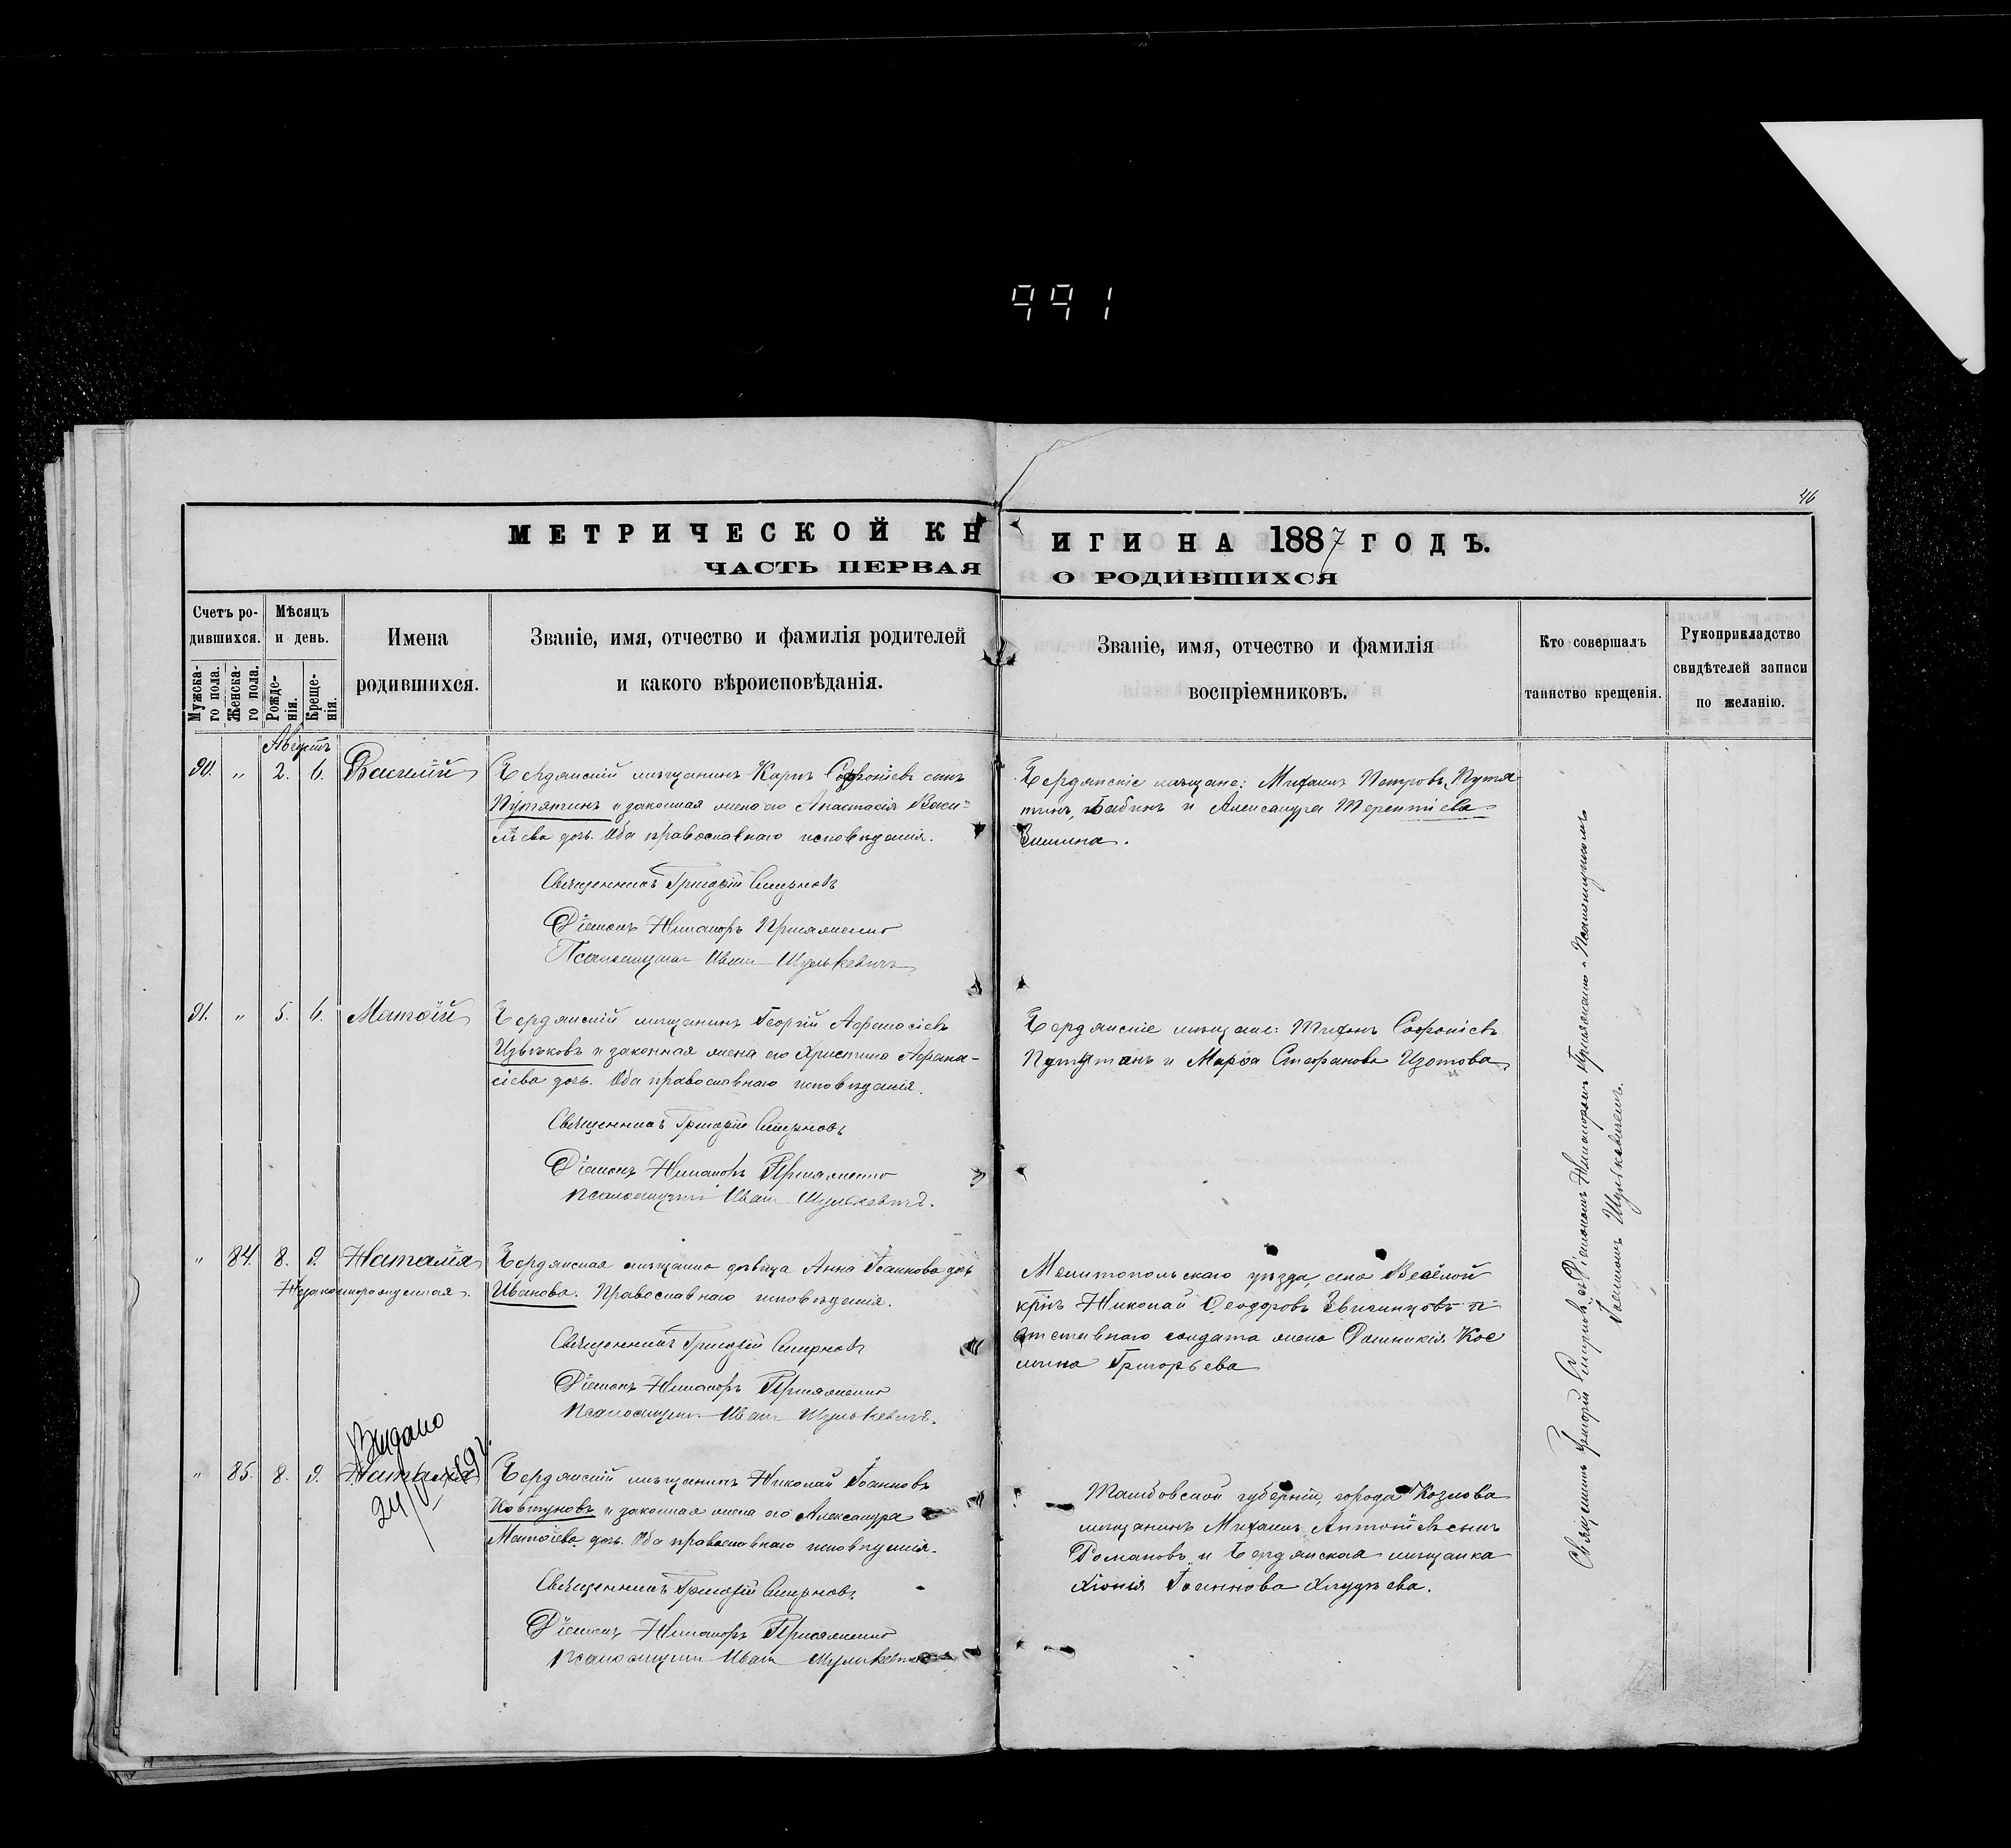 991
46
МЕТРИЧЕСКОЙ КНИГИ НА 1887 ГОДЪ.
ЧАСТЬ ПЕРВАЯ О РОДИВШИХСЯ
Счетъ родившихся.
Мужскаго пола.
Женскаго пола.
Мѣсяцъ и день.
Рожденія.
Крещенія.
Имена родившихся.
Званіе, имя, отчество и фамилія родителей
и какого вѣроисповѣданія.
Званіе, имя, отчество и фамилія
воспріемниковъ.
Кто совершалъ
таинство крещенія.
Рукоприкладство
свидѣтелей записи
по желанію.
Августъ
90. " 2. 6. Василій
Бердянскій мѣщанинъ Карпъ Софроніевъ сынъ
Путятинъ и законная жена его Анастасія Васи-
ліева дочь. Оба православнаго исповѣданія.
Священникъ Григорій Смирновъ
Діаконъ Никаноръ Присяженко
Псаломщикъ Иванъ Шулькевичъ
Бердянскіе мѣщане: Михаилъ Петровъ Путя-
тинъ, Бабинъ и Александра Терентіева
Зимина.
91. " 5. 6. Матѳій
Бердянскій мѣщанинъ Георгій Афанасіевъ
Извѣковъ и законная жена его Христина Афана-
сіева дочь. Оба православнаго исповѣданія.
Священникъ Григорій Смирновъ
Діаконъ Никаноръ Присяженко
Псаломщикъ Иванъ Шулькевичъ.
Бердянскіе мѣщане: Тихонъ Софроніевъ
Путятинъ и Марѳа Стефанова Изотова
" 84. 8. 9. Наталія
Незаконнорожденная.
Бердянская мѣщанка дѣвица Анна Іоаннова дочь
Иванова. Православнаго исповѣданія.
Священникъ Григорій Смирновъ
Діаконъ Никаноръ Присяженко
Псаломщикъ Иванъ Шулькевичъ.
Мелитопольскаго уѣзда, села Весёлой
кр̃нъ Николай Ѳеодоровъ Звягинцовъ и
отставнаго солдата жена Домникія Кос
мина Григорьева
" 85. 8. 9. Наталія
Выдано
Бердянскій мѣщанинъ Николай Іоанновъ
Ковтуновъ и законная жена его Александра
Матѳіева дочь. Оба православнаго исповѣданія.
Священникъ Григорій Смирновъ
Діаконъ Никаноръ Присяженко
Псаломщикъ Иванъ Шулькевичъ
Тамбовской губерніи, города Козлова
мѣщанинъ Михаилъ Антоніевъ сынъ
Романовъ и Бердянская мѣщанка
Хіонія Іоаннова Хлудѣева.
Священникъ Григорій Смирновъ съ Діакономъ Никаноромъ Присяженко и Псаломщикомъ
Іоанномъ Шулькевичемъ.